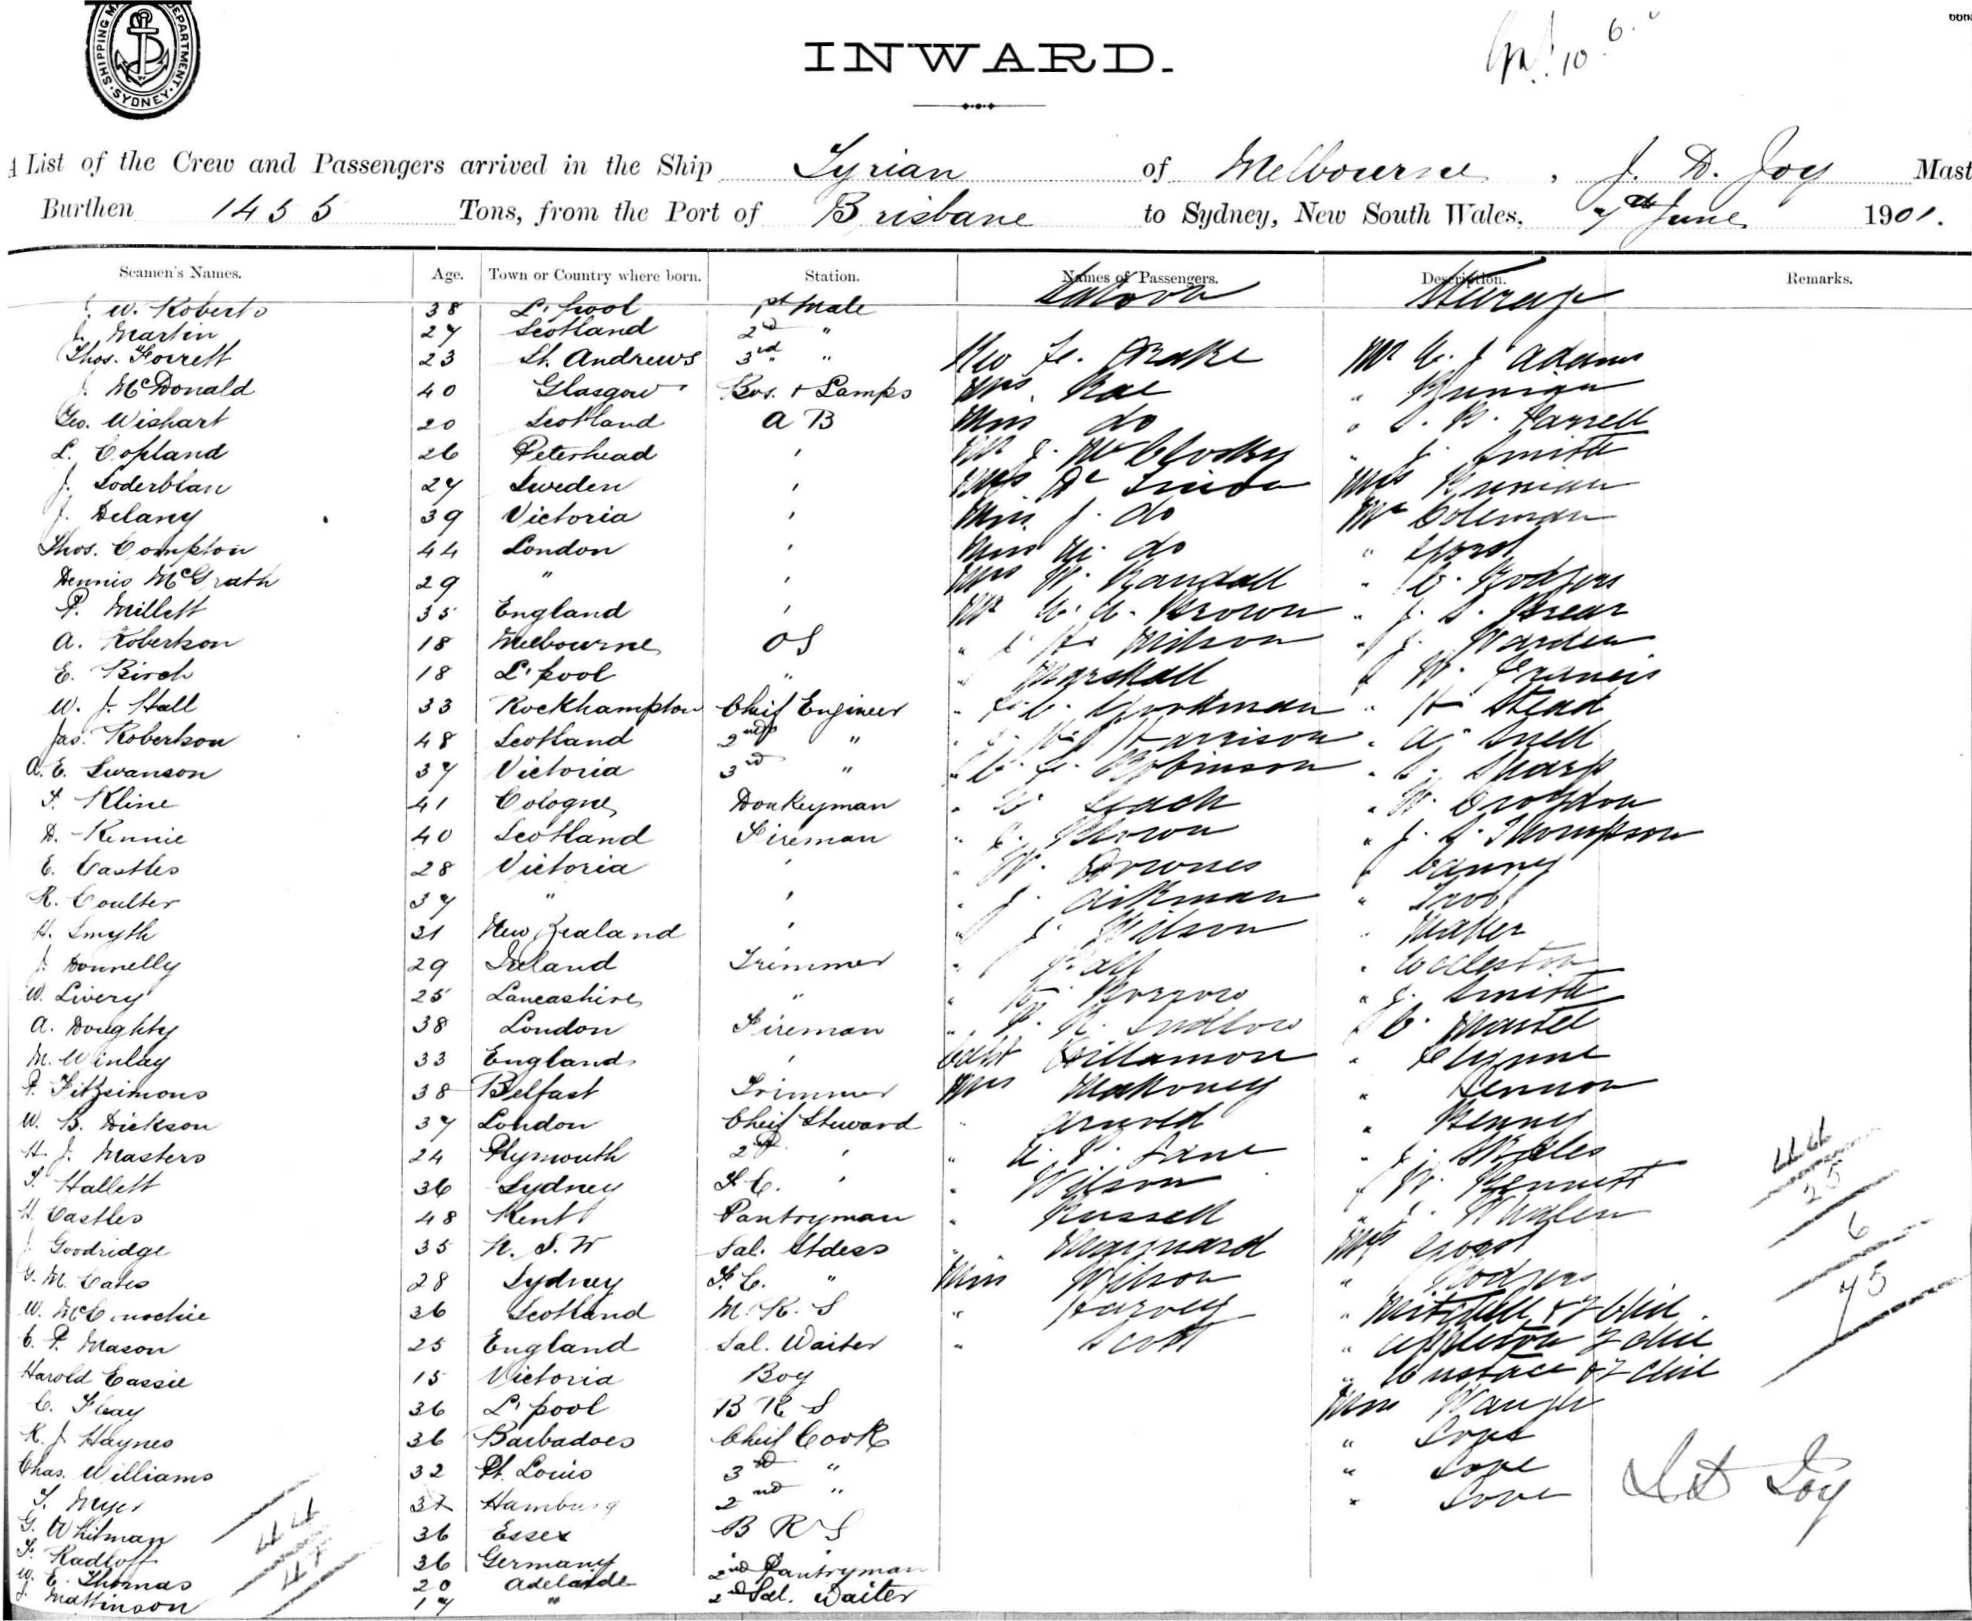 SHIPPING MA DEPARTMENT. SYDNEY.
INWARD.
10 6
List of the Crew and Passengers arrived in the Ship Tyrian of Melbourne, J. D. Joy Mast
Burthen 1455 Tons, from the Port of Brisbane to Sydney, New South Wales, 7th June 1901.
Seamen's Names. Age. Town or Country where born. Station. Names of Passengers. Description. Remarks.
W. Roberts 38 L'pool 1st Mate Saloon Steerage
J. Martin 27 Scotland 2nd "
Thos. Forrett 23 St. Andrews 3rd " Drake Mr C. J. Adams
J. McDonald 40 Glasgow Bos. + Lamps Mrs. Rae "
Geo. Wishart 20 Scotland A B Miss do " Farrell
L. Copland 26 Peterhead ' Mr J. " J. Smith
J. Soderblan 27 Sweden ' Mrs Mrs
J. Delany 39 Victoria ' Miss J. do Mr Coleman
Thos. Compton 44 London ' Miss do "
Dennis McGrath 29 " ' Mrs W. Randall " C. Rodgers
P. Millett 35 England ' Mr Brown " J. S.
A. Robertson 18 Melbourne O S " Wilson " J. Warden
E. Birch 18 L'pool " " Marshall " W. Francis
W. J. Hall 33 Rockhampton Cheif Engineer " Workman " H. Stead
Jas. Robertson 48 Scotland 2nd " " Harrison " A. Snell
A. E. Swanson 37 Victoria 3rd " " C. F. Robinson " S. Sharp
F. Kline 41 Cologne Donkeyman " Leach " W. Brogdon
D. Rennie 40 Scotland Fireman " Brown " J. S. Thompson
E. Castles 28 Victoria ' " W. Downes " Canny
R. Coulter 37 " ' " J. Aikman "
H. Smyth 31 New Zealand ' " J. Wilson " Maher
J. Donnelly 29 Ireland Trimmer " " Eccleston
W. Livery 25 Lancashire " " Borrow " J. Smith
A. Doughty 38 London Fireman " P. R. Ludlow " C. Martel
M. Winlay 33 England ' Capt " Clynne
P. Fitzsimons 38 Belfast Trimmer Mrs Mahoney " Lennon
W. B. Dickson 37 London Cheif Steward " Arnold " Kenny
H. J. Masters 24 Plymouth 2nd ' " Lane " J.
T. Hallett 36 Sydney F. C. ' " Wilson " W. Bennett
H. Castles 48 Kent Pantryman " Russell " J. Whalen
J. Goodridge 35 N. S. W Sal. Stdess " Maynard Mrs
G. M. Cates 28 Sydney F. C. " Miss Wilson " Rodgers
W. McConochie 36 Scotland M. R. S " Harvey " Mitchell + 2 Chil
C. P. Mason 25 England Sal. Waiter " Scott " Appleton 2 Chil
Harold Cassie 15 Victoria Boy " Eustace + 2 Chil
C. Fleay 36 L'pool B R S Miss Waugh
R. J. Haynes 36 Barbadoes Cheif Cook " Love
Chas. Williams 32 St. Louis 3rd " " Love
T. Meyer 37 Hamburg 2nd " " Love
G. Whitman 36 Essex B R S
F. Radloff 36 Germany 2nd Pantryman
W. E. Thomas 20 Adelaide 2nd Sal. Waiter
J. Mattinson 17 "
44
25
6
75
44
Joy